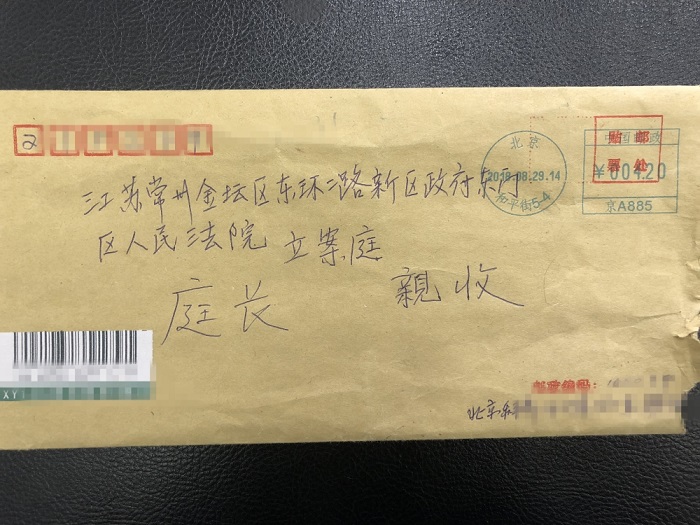 2
北京
2018.08.29.14
和平街5-4
中国邮政
贴邮
票处
¥00420
京A885
江苏常州金坛区东环二路新区政府东门
区人民法院 立案庭
庭长 親收
XY
邮政编码:
北京